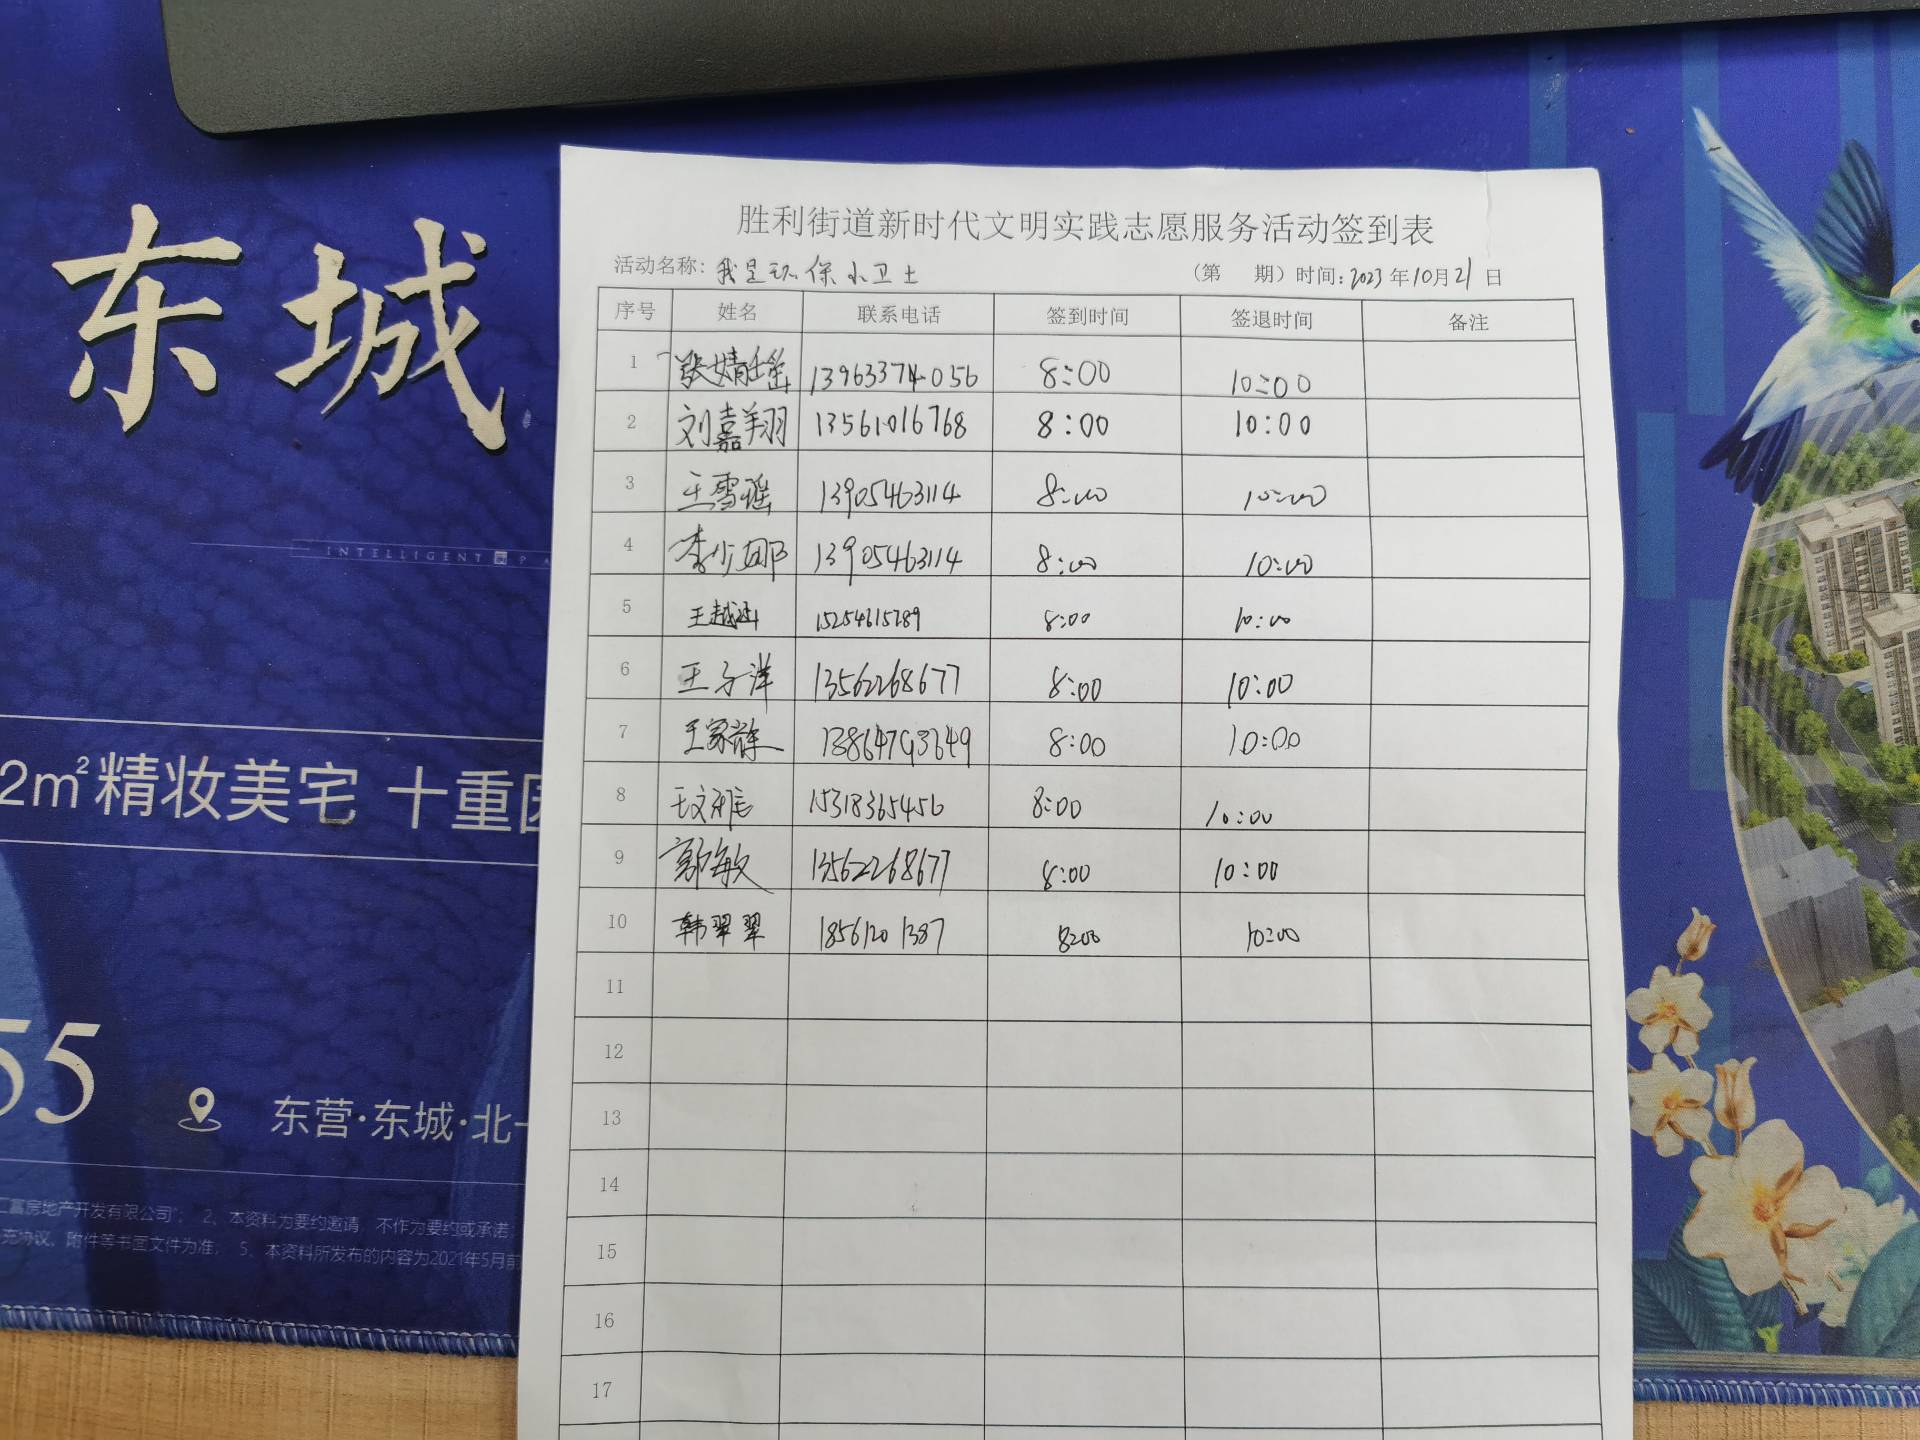 东城
INTELLIGENT PA
2m²精妆美宅 十重
55
东营·东城·北一
汇富房地产开发有限公司"; 2、本资料为要约邀请,不作为要约或承诺,
充协议、附件等书面文件为准; 5、本资料所发布的内容为2021年5月前
胜利街道新时代文明实践志愿服务活动签到表
活动名称:我是环保小卫士 (第 期)时间:2023年10月21日
序号 姓名 联系电话 签到时间 签退时间 备注
1 张婧瑶 13963374056 8:00 10:00
2 刘嘉翔 13561016768 8:00 10:00
3 王雪瑶 13905463114 8:00 10:00
4 李少娜 13905463114 8:00 10:00
5 王越 15254615289 8:00 10:00
6 王子洋 13562268677 8:00 10:00
7 王家 13864793649 8:00 10:00
8 王文雅 15318365456 8:00 10:00
9 郭敏 13562268677 8:00 10:00
10 韩翠翠 18561201387 8:00 10:00
11
12
13
14
15
16
17